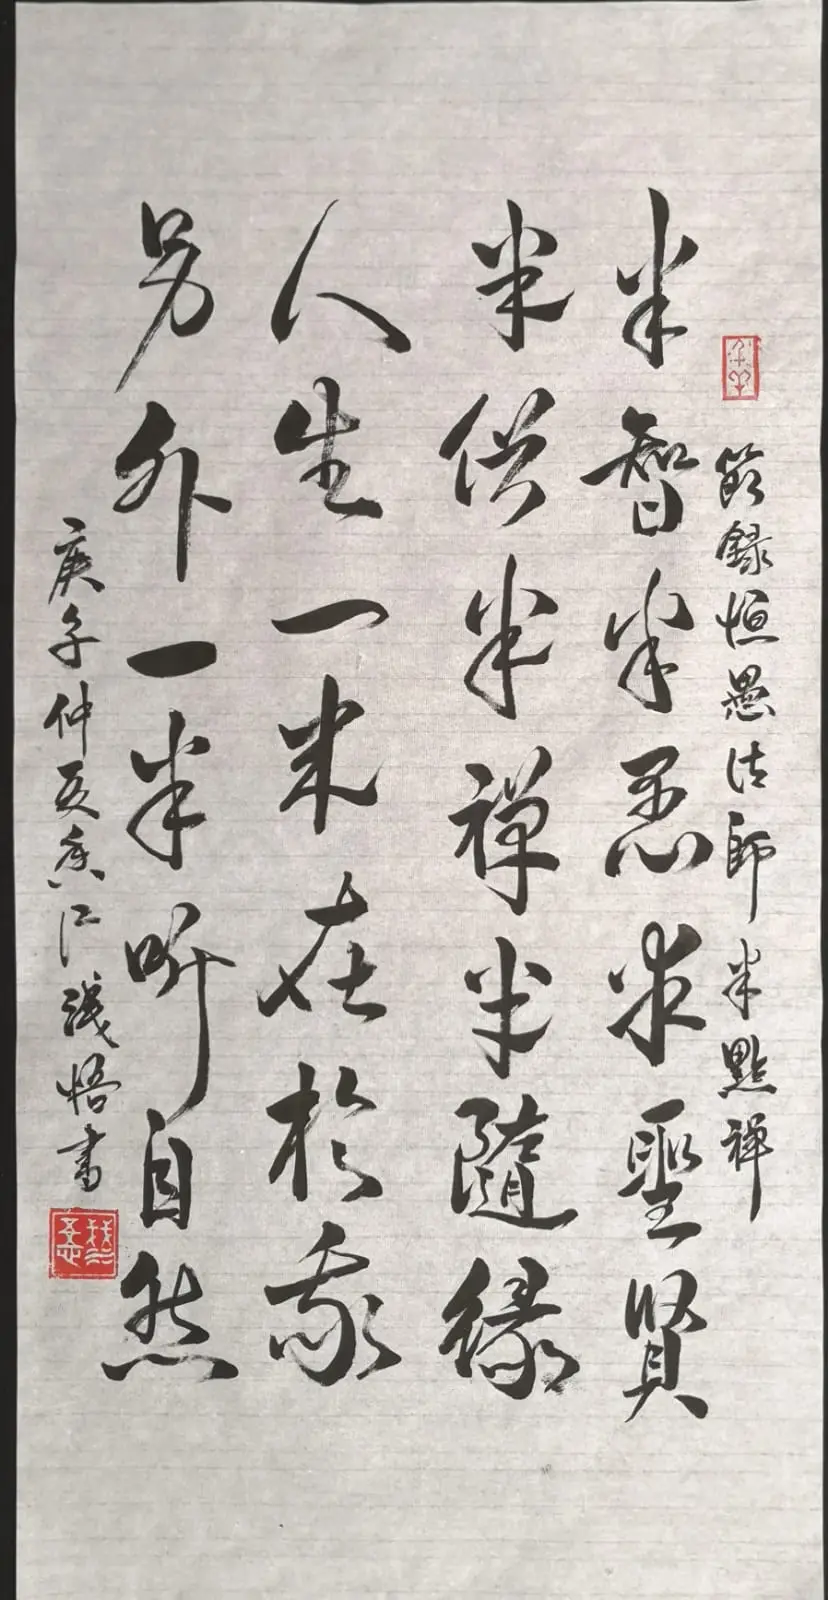 節錄恒愚法師半點禪
半智半愚求聖賢
半俗半禪半隨緣
人生一半在於我
另外一半听自然
庚子仲夏香江淺悟書